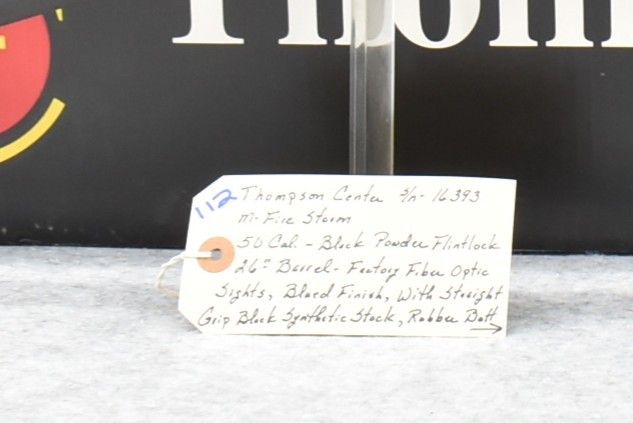 Thom
112 Thompson Center S/n- 16393
m- Fire Storm
50 Cal - Black Powder Flintlock
26" Barrel - Factory Fiber Optic
Sights, Blued Finish, With Straight
Grip Black Synthetic Stock, Rubber Butt